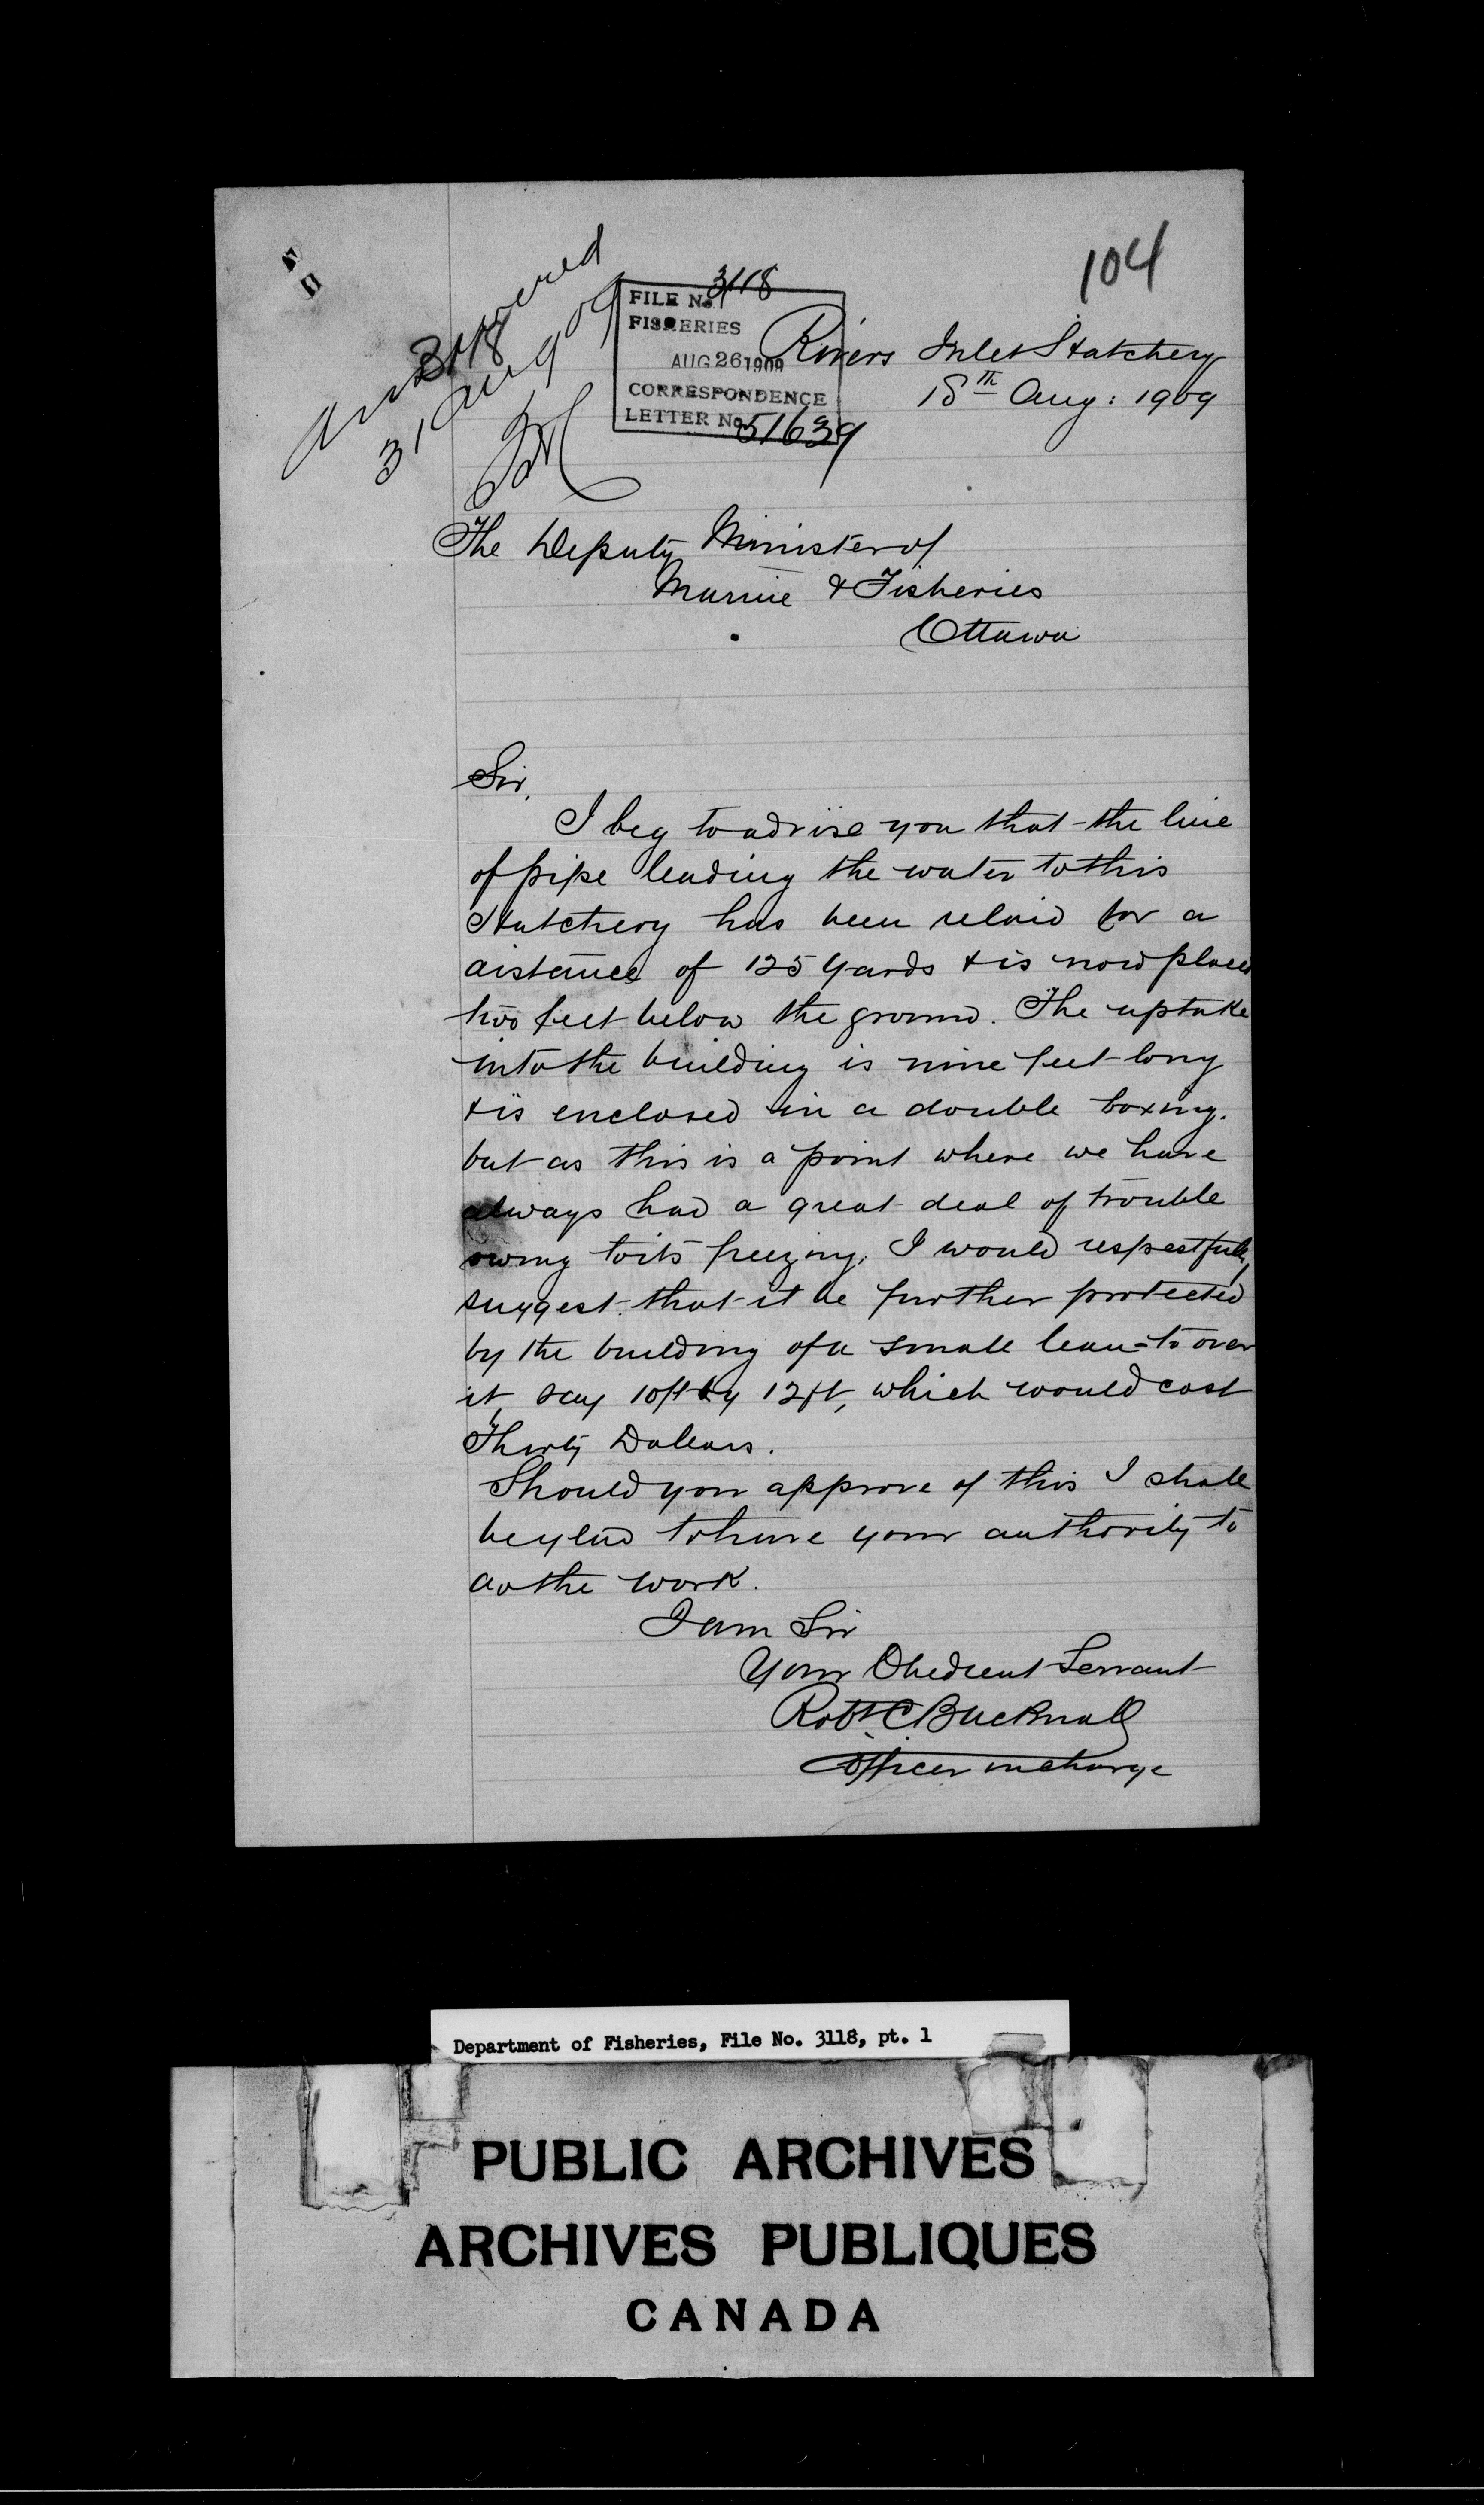 104
Answered
3118
31 Aug 09
FILE No. 3118
FISHERIES
AUG 26 1909
CORRESPONDENCE
LETTER No. 51639
Rivers Inlet Hatchery
18th Aug: 1909
The Deputy Minister of
Marine & Fisheries
Ottawa
Sir,
I beg to advise you that the line
of pipe leading the water to this
Hatchery has been relaid for a
distance of 125 yards & is now placed
two feet below the ground. The uptake
into the building is nine feet long
& is enclosed in a double boxing.
but as this is a point where we have
always had a great deal of trouble
owing to its freezing, I would respectfully
suggest that it be further protected
by the building of a small lean-to over
it, say 10ft by 12ft, which would cost
Thirty Dollars.
Should you approve of this I shall
be glad to have your authority to
do the work.
I am Sir
Your Obedient Servant
Robt. C. Bucknall
Officer in charge
Department of Fisheries, File No. 3118, pt. 1
PUBLIC ARCHIVES
ARCHIVES PUBLIQUES
CANADA